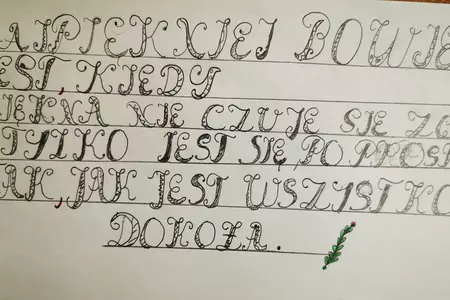 AJPIĘKNIEJ BOWIE
EST, KIEDY
IĘKNA NIE CZUJE SIĘ ZG
TYLKO JEST SIĘ PO PROS
AK, JAK JEST WSZYSTKO
DOKOŁA.